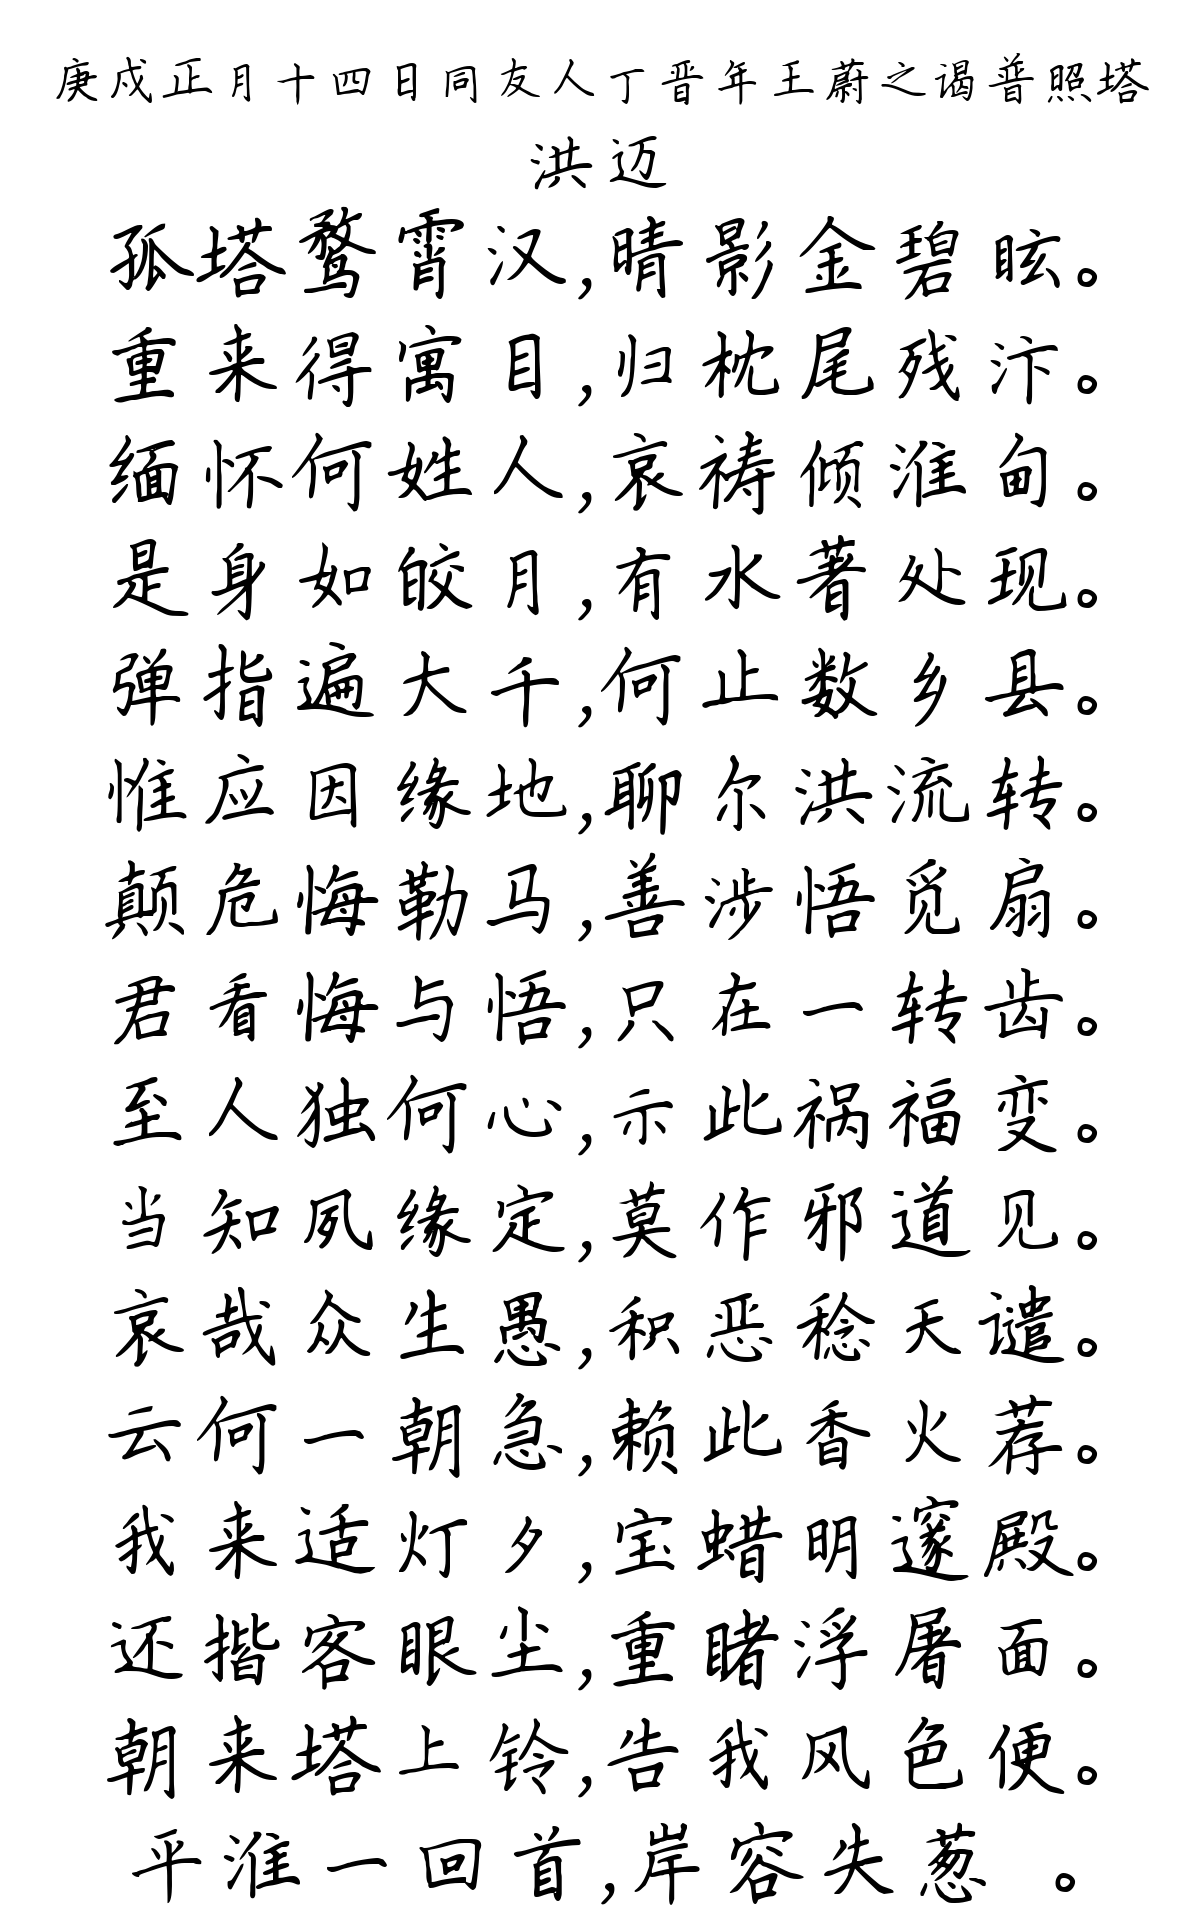 庚戌正月十四日同友人丁晋年王蔚之谒普照塔
洪迈
孤塔鹜霄汉,晴影金碧眩。
重来得寓目,归枕尾残汴。
缅怀何姓人,哀祷倾淮甸。
是身如皎月,有水著处现。
弹指遍大千,何止数乡县。
惟应因缘地,聊尔洪流转。
颠危悔勒马,善涉悟觅扇。
君看悔与悟,只在一转齿。
至人独何心,示此祸福变。
当知夙缘定,莫作邪道见。
哀哉众生愚,积恶稔天谴。
云何一朝急,赖此香火荐。
我来适灯夕,宝蜡明邃殿。
还揩客眼尘,重睹浮屠面。
朝来塔上铃,告我风色便。
平淮一回首,岸容失葱 。